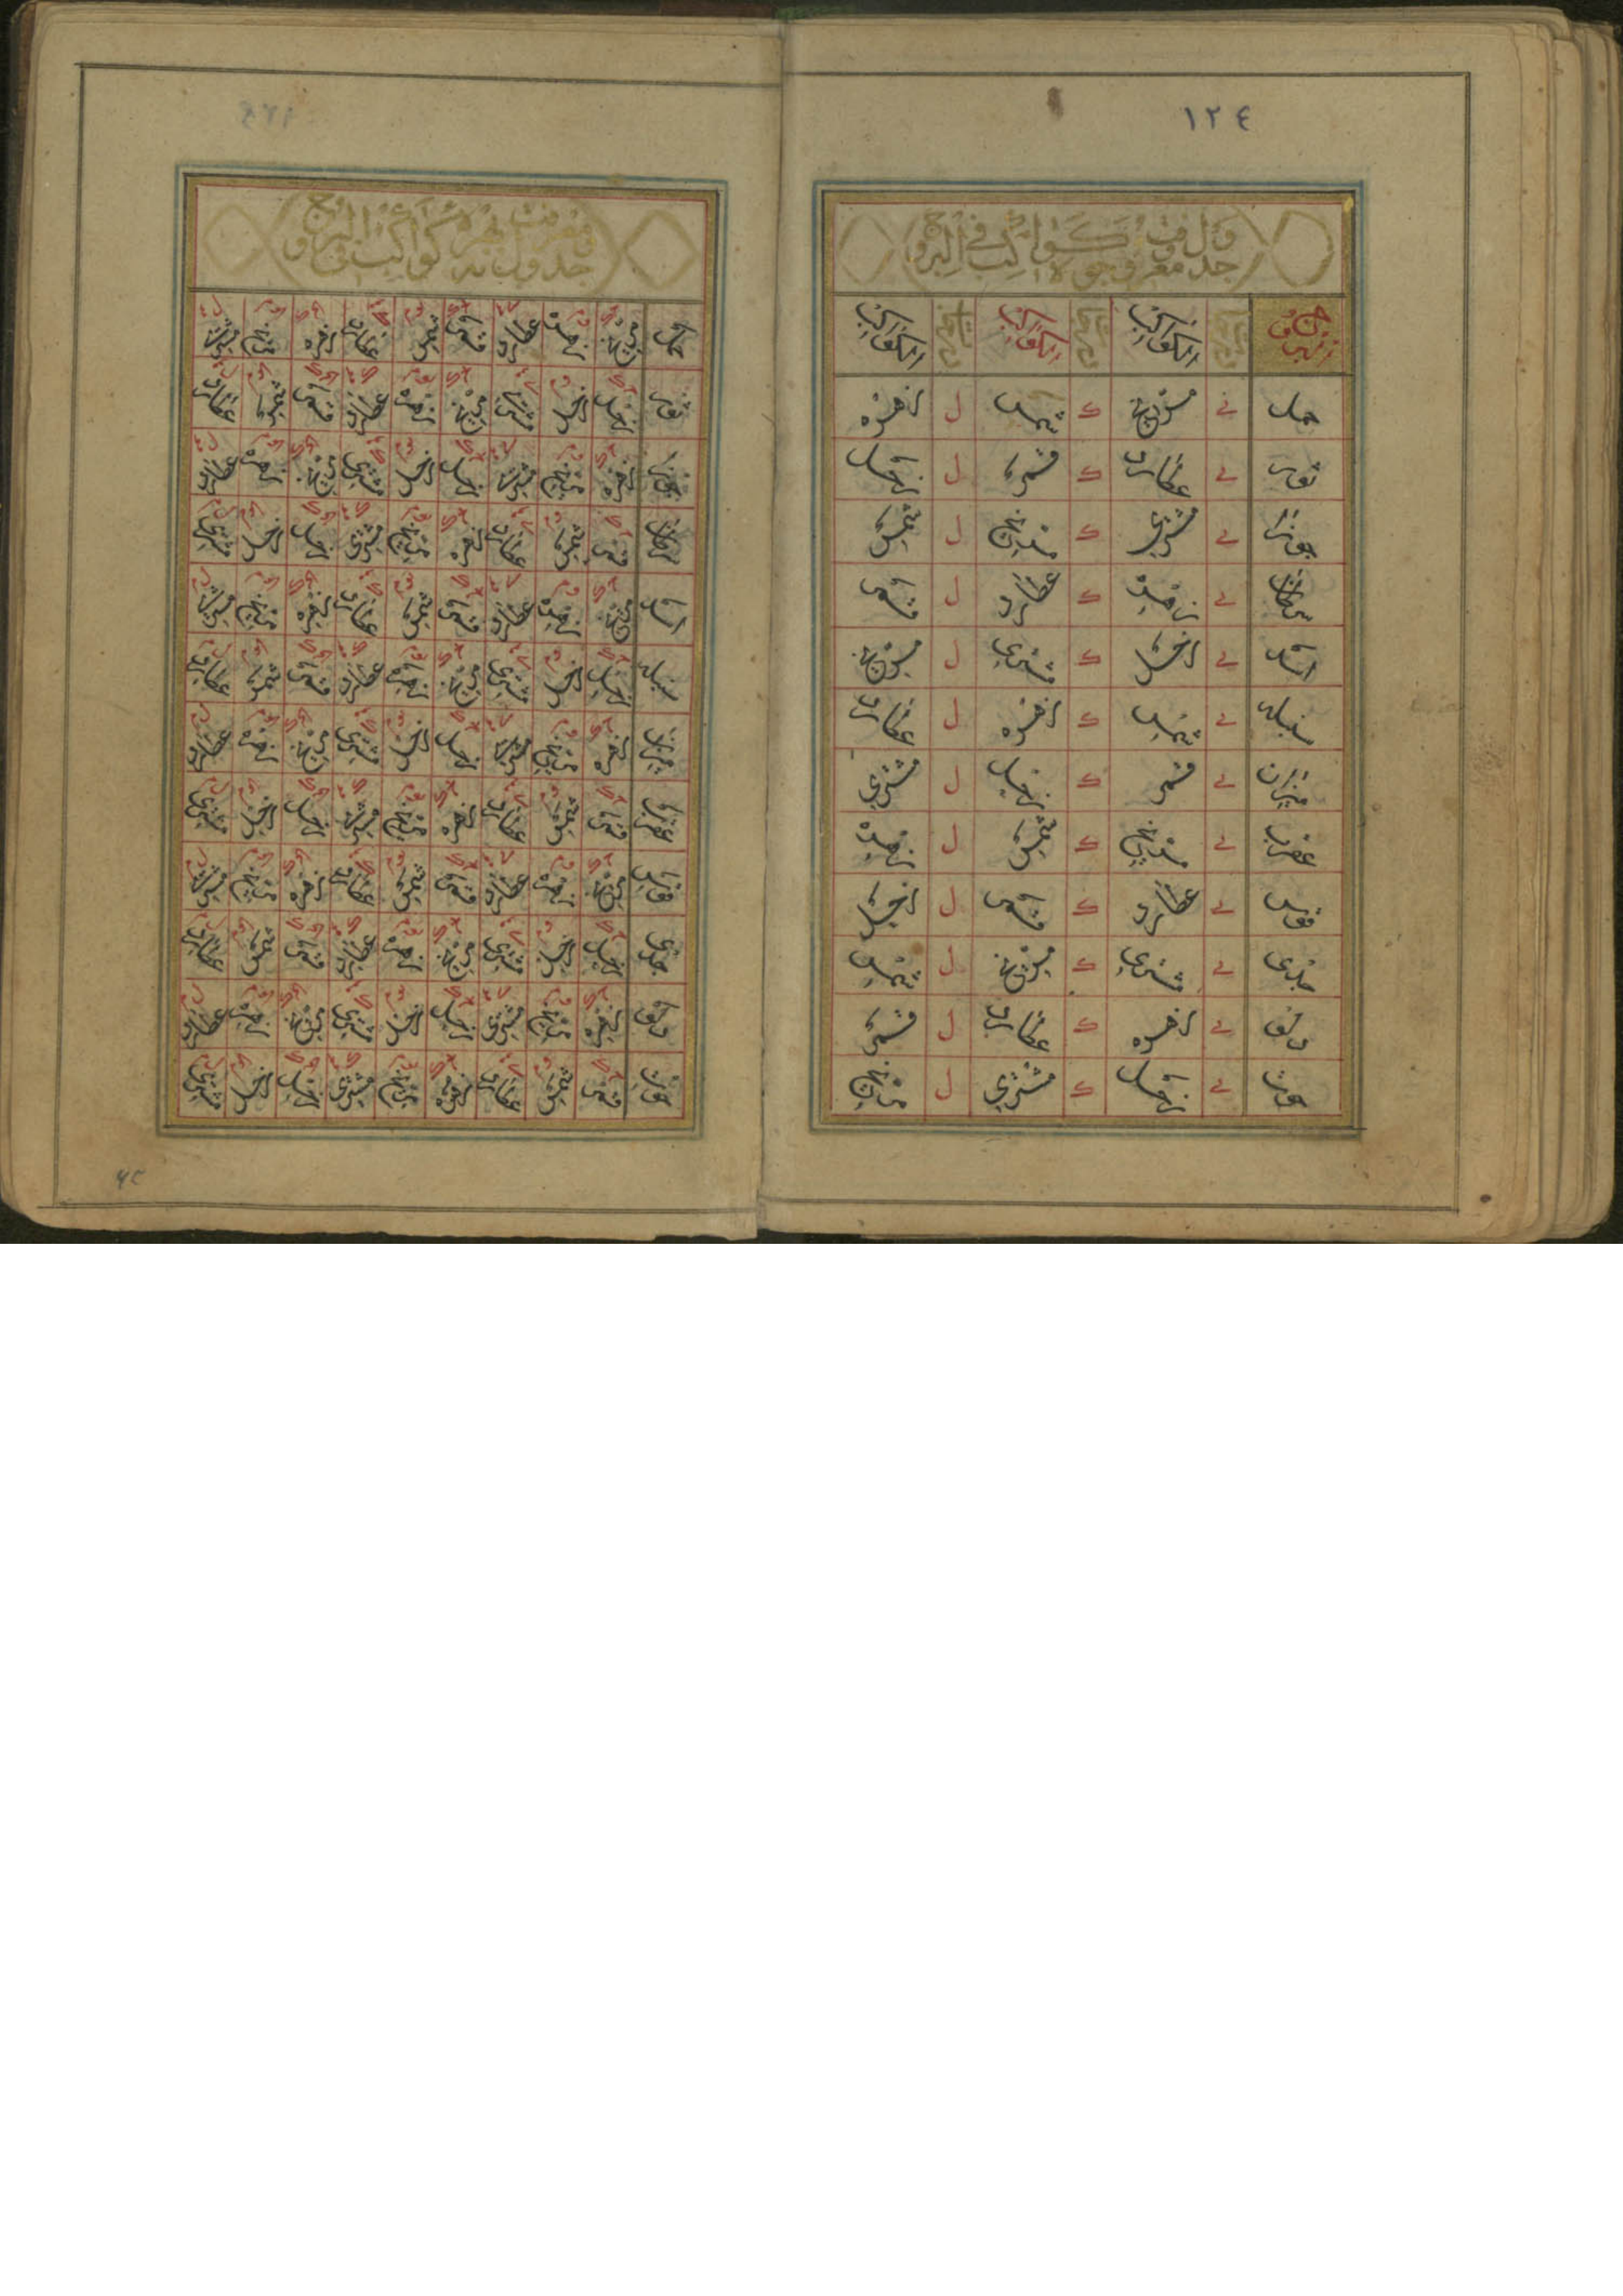 ١٢٤
جدول معرفت وجوه كواكب في البروج
البروج الكواكب الكواكب الكواكب
حمل ي مريخ ك شمس ل زهره
ثور ي عطارد ك قمر ل زحل
جوزا ي مشتري ك مريخ ل شمس
سرطان ي زهره ك عطارد ل قمر
اسد ي زحل ك مشتري ل مريخ
سنبله ي شمس ك زهره ل عطارد
ميزان ي قمر ك زحل ل مشتري
عقرب ي مريخ ك شمس ل زهره
قوس ي عطارد ك قمر ل زحل
جدى ي مشتري ك مريخ ل شمس
دلو ي زهره ك عطارد ل قمر
حوت ي زحل ك مشتري ل مريخ
جدول معرفت نه بهره كواكب في البروج
حمل مريخ زهره عطارد قمر شمس عطارد زهره مريخ مشتري
ثور زحل زحل مشتري مريخ زهره عطارد قمر شمس عطارد
جوزا زهره مريخ مشتري زحل زحل مشتري مريخ زهره عطارد
سرطان قمر شمس عطارد زهره مريخ مشتري زحل زحل مشتري
اسد مريخ زهره عطارد قمر شمس عطارد زهره مريخ مشتري
سنبله زحل زحل مشتري مريخ زهره عطارد قمر شمس عطارد
ميزان زهره مريخ مشتري زحل زحل مشتري مريخ زهره عطارد
عقرب قمر شمس عطارد زهره مريخ مشتري زحل زحل مشتري
قوس مريخ زهره عطارد قمر شمس عطارد زهره مريخ مشتري
جدى زحل زحل مشتري مريخ زهره عطارد قمر شمس عطارد
دلو زهره مريخ مشتري زحل زحل مشتري مريخ زهره عطارد
حوت قمر شمس عطارد زهره مريخ مشتري زحل زحل مشتري